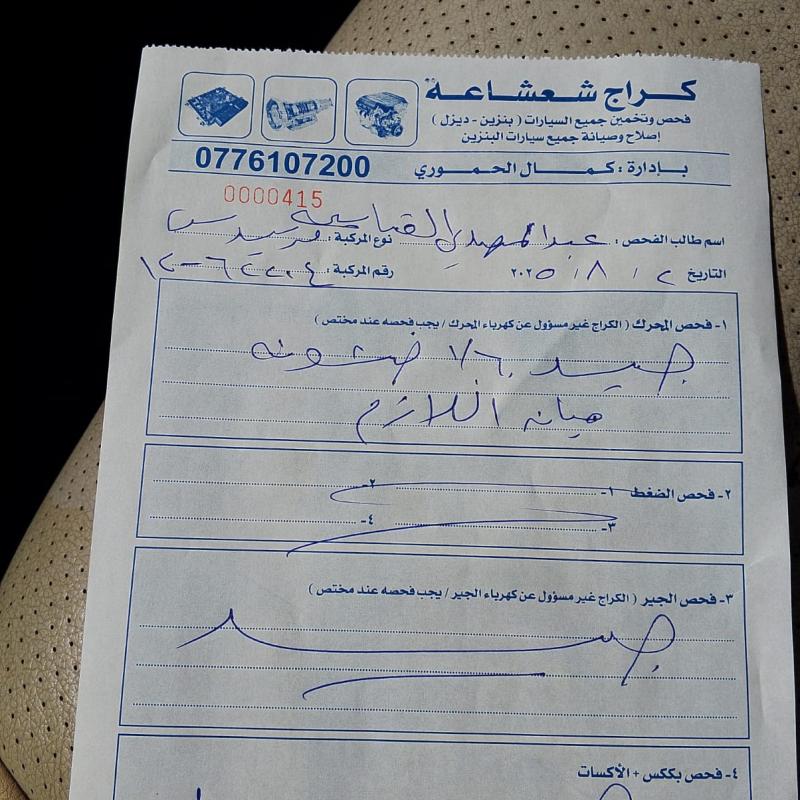 كراج شعشاعة
فحص وتخمين جميع السيارات ( بنزين - ديزل )
إصلاح وصيانة جميع سيارات البنزين
بإدارة : كمال الحموري 0776107200
0000415
اسم طالب الفحص : عبد المهدي نوع المركبة : مرسيدس
التاريخ ٢ / ٨ / ٢٠٢٥ رقم المركبة :
١- فحص المحرك ( الكراج غير مسؤول عن كهرباء المحرك / يجب فحصه عند مختص )
جيد
اللازم
٢- فحص الضغط ١- ٢-
٣- ٤-
٣- فحص الجير ( الكراج غير مسؤول عن كهرباء الجير / يجب فحصه عند مختص )
جيد
٤- فحص بككس + الأكسات